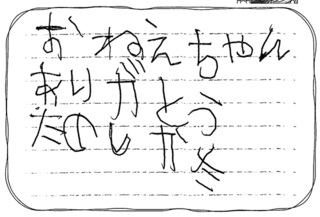 おねえちゃん
ありがとう
たのしかた